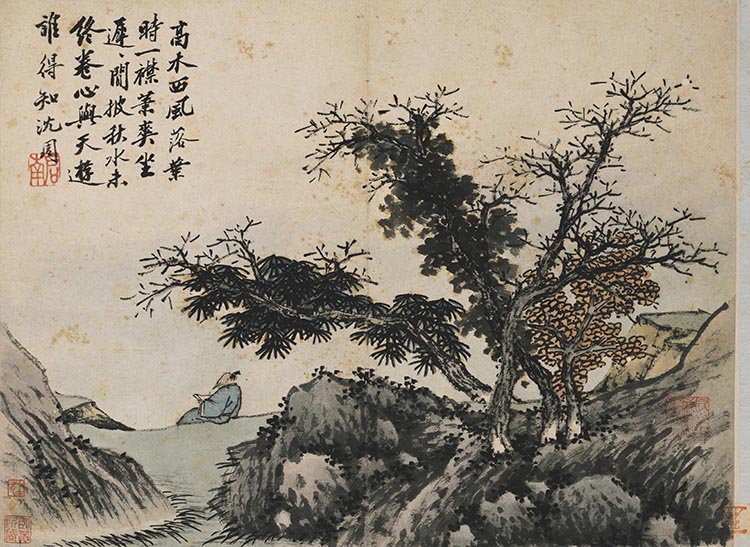 高木西風落葉
時一襟蕭爽坐
遲遲閒披秋水未
終卷心與天遊
誰得知沈周